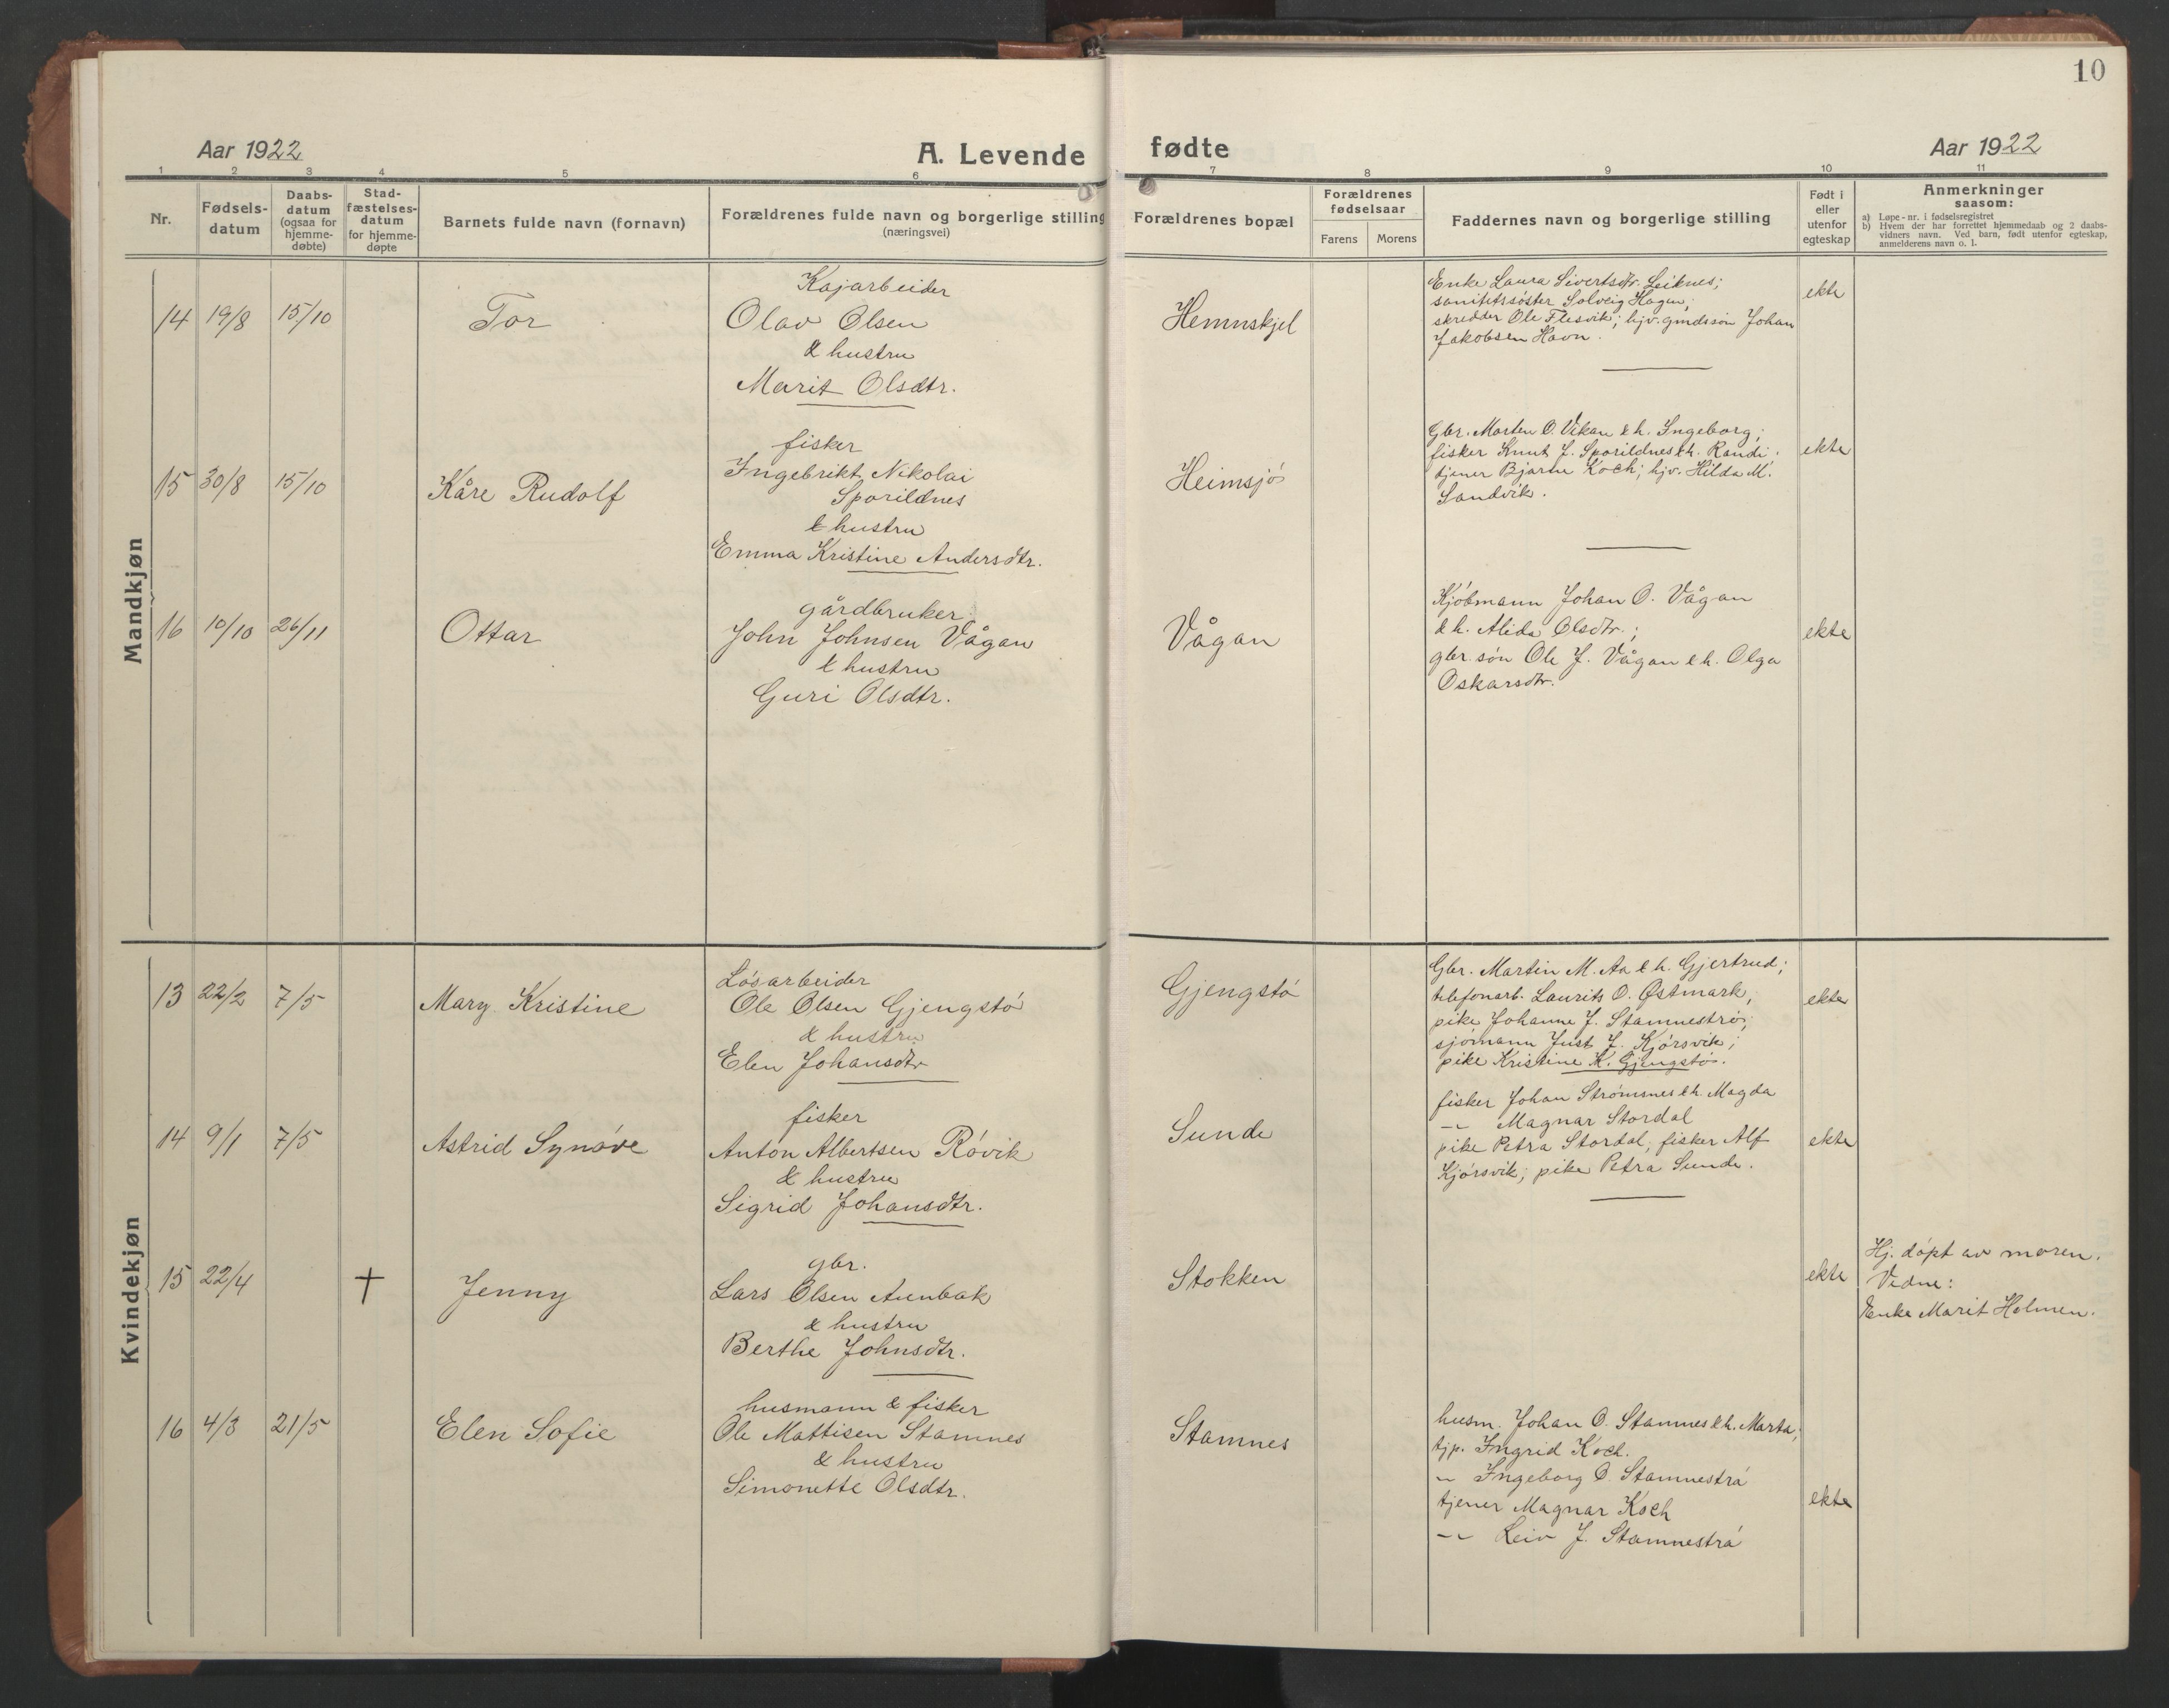 10
Aar 1922
A. Levende fødte
Aar 1922
1 2 3 4 5 6 7 8 9 10 11
Nr.
Fødsels-
datum
Daabs-
datum
(ogsaa for
hjemme-
døbte)
Stad-
fæstelses-
datum
for hjemme-
døpte
Barnets fulde navn (fornavn)
Forældrenes fulde navn og borgerlige stilling
(næringsvei)
Forældrenes bopæl
Forældrenes
fødselsaar
Farens Morens
Faddernes navn og borgerlige stilling
Født i
eller
utenfor
egteskap
Anmerkninger
saasom:
a) Løpe-nr. i fødselsregistret
b) Hvem der har forrettet hjemmedaab og 2 daabs-
vidners navn. Ved barn, født utenfor egteskap,
anmelderens navn o. l.
Mandkjøn
14 19/8 15/10
Tor
Kajarbeider
Olav Olsen
& hustru
Marit Olsdtr.
Hemnskjel
Enke Laura Sivertsdtr. Leiknes;
sanitetssøster Solveig Hagen;
skredder Ole Flesvik; hjv. gmdssøn Johan
Jakobsen Havn.
ekte
15 30/8 15/10
Kåre Rudolf
fisker
Ingebrikt Nikolai
Sporildnes
& hustru
Emma Kristine Andersdtr.
Heimsjó
Gbr. Morten O. Vikan & h. Ingeborg;
fisker Knut J. Sporildnes & h. Randi.
tjener Bjarne Koch; hjv. Hilda M.
Sandvik.
ekte
16 10/10 26/11
Ottar
gårdbruker
John Johnsen Vågan
& hustru
Guri Olsdtr.
Vågan
Kjóbmann Johan O. Vågan
& h. Alida Olsdtr.;
gbr. søn Ole J. Vågan & h. Olga
Oskarsdtr.
ekte
Kvindekjøn
13 22/2 7/5
Mary Kristine
Lósarbeider
Ole Olsen Gjengstó
& hustru
Elen Johansdtr
Gjengstó
Gbr. Martin M. Aa & h. Gjertrud;
telefonarb. Laurits O. Østmark;
pike Johanne J. Stamnestró;
sjómann Just J. Kjórsvik;
pike Kristine K. Gjengstó.
ekte
14 9/1 7/5
Astrid Synóve
fisker
Anton Albertsen Róvik
& hustru
Sigrid Johansdtr.
Sunde
fisker Johan Strómsnes & h. Magda
-"- Magnar Stordal
pike Petra Stordal, fisker Alf
Kjórsvik; pike Petra Sunde.
ekte
15 22/4
†
Jenny
gbr.
Lars Olsen Aunbak
& hustru
Berthe Johnsdtr.
Stokken
ekte
Hj. dópt av moren.
Vidne:
Enke Marit Holmen.
16 4/3 21/5
Elen Sofie
husmann & fisker
Ole Mattisen Stamnes
& hustru
Simonette Olsdtr.
Stamnes
husm. Johan O. Stamnes & h. Marta;
tjp. Ingrid Koch.
-"- Ingeborg O. Stamnestró
tjener Magnar Koch
-"- Leiv J. Stamnestró
ekte